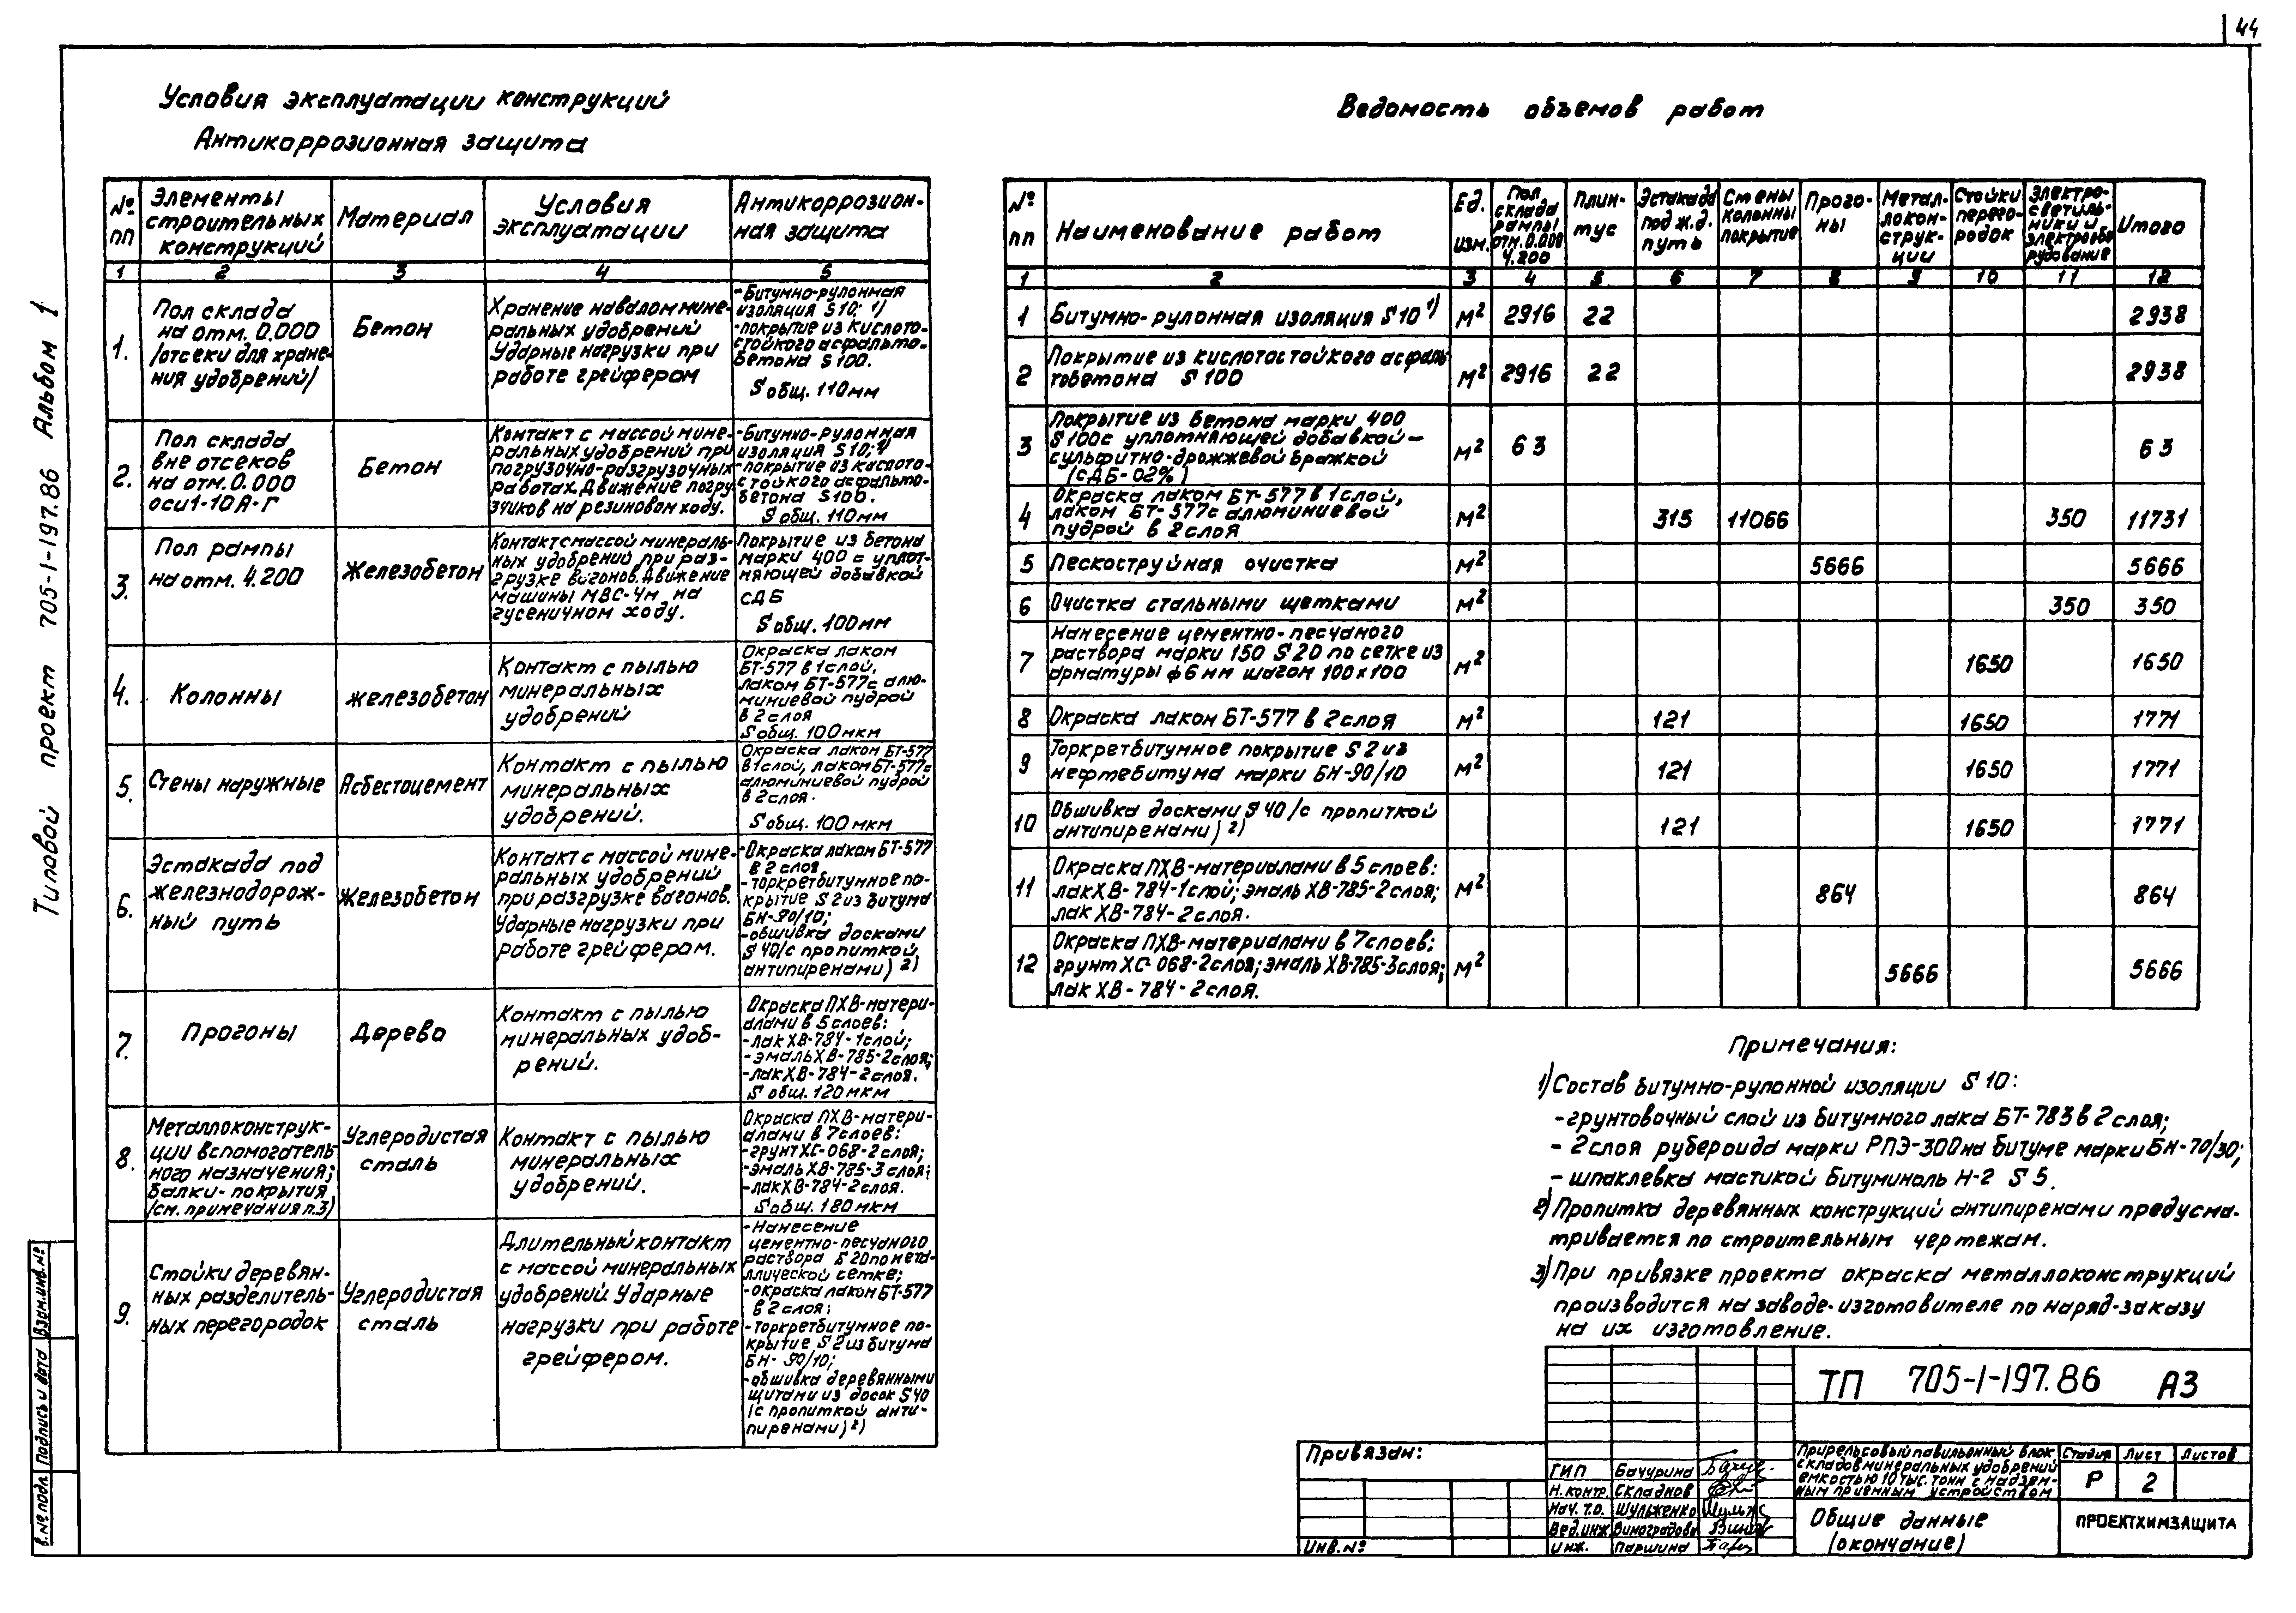 44
Условия эксплуатации конструкций
Антикоррозионная защита
№ пп
Элементы
строительных
конструкций
Материал
Условия
эксплуатации
Антикоррозион-
ная защита
1 2 3 4 5
1.
Пол склада
на отм. 0.000
/отсеки для хране-
ния удобрений/
Бетон
Хранение навалом мине-
ральных удобрений
Ударные нагрузки при
работе грейфером
-Битумно-рулонная
изоляция S10; 1)
-покрытие из кислото-
стойкого асфальто-
бетона S100.
S общ. 110мм
2.
Пол склада
вне отсеков
на отм. 0.000
оси 1-10 А-Г
Бетон
Контакт с массой мине-
ральных удобрений при
погрузочно-разгрузочных
работах. Движение погру
зчиков на резиновом ходу.
-Битумно-рулонная
изоляция S10; 1)
-покрытие из кислото-
стойкого асфальто-
бетона S100.
S общ. 110мм
3.
Пол рампы
на отм. 4.200
Железобетон
Контакт с массой минераль-
ных удобрений при раз-
грузке вагонов. Движение
машины МВС-4м на
гусеничном ходу.
Покрытие из бетона
марки 400 с уплот-
няющей добавкой
СДБ
S общ. 100мм
4.
Колонны
Железобетон
Контакт с пылью
минеральных
удобрений
Окраска лаком
БТ-577 в 1 слой,
лаком БТ-577 с алю-
миниевой пудрой
в 2 слоя
S общ. 100мкм
5.
Стены наружные
Асбестоцемент
Контакт с пылью
минеральных
удобрений.
Окраска лаком БТ-577
в 1 слой, лаком БТ-577 с
алюминиевой пудрой
в 2 слоя.
S общ. 100мкм
6.
Эстакада под
железнодорож-
ный путь
Железобетон
Контакт с массой мине-
ральных удобрений
при разгрузке вагонов.
Ударные нагрузки при
работе грейфером.
-Окраска лаком БТ-577
в 2 слоя
-торкретбитумное по-
крытие S2 из битума
БН-90/10;
-обшивка досками
S 40/с пропиткой
антипиренами) 2)
7.
Прогоны
Дерево
Контакт с пылью
минеральных удоб-
рений.
Окраска ПХВ-матери-
алами в 5 слоев:
-лак ХВ-784-1 слой;
-эмаль ХВ-785-2 слоя;
-лак ХВ-784-2 слоя.
S общ. 120мкм
8.
Металлоконструк-
ции вспомогатель
ного назначения;
балки-покрытия
/см. примечания п.3)
Углеродистая
сталь
Контакт с пылью
минеральных
удобрений.
Окраска ПХВ-матери-
алами в 7 слоев:
-грунт ХС-068-2 слоя;
-эмаль ХВ-785-3 слоя;
-лак ХВ-784-2 слоя.
S общ. 180мкм
9.
Стойки деревян-
ных разделитель-
ных перегородок
Углеродистая
сталь
Длительный контакт
с массой минеральных
удобрений Ударные
нагрузки при работе
грейфером.
-Нанесение
цементно-песчаного
раствора S20 по мета-
ллической сетке;
-окраска лаком БТ-577
в 2 слоя;
-торкретбитумное по-
крытие S2 из битума
БН-90/10;
-обшивка деревянными
щитами из досок S40
/с пропиткой анти-
пиренами) 2)
Ведомость объемов работ
№ пп
Наименование работ
Ед. изм.
Пол склада рампы отм. 0.000 4.200
Плин-тус
Эстакада под ж.д. путь
Стены колонны покрытие
Прого-ны
Метал-локон-струк-ции
Стойки перего-родок
Электро-светиль-ники и электрообо рудование
Итого
1 2 3 4 5 6 7 8 9 10 11 12
1 Битумно-рулонная изоляция S10 1) м² 2916 22 2938
2 Покрытие из кислотостойкого асфаль
тобетона S 100 м² 2916 22 2938
3 Покрытие из бетона марки 400
S100 с уплотняющей добавкой-
сульфитно-дрожжевой бражкой
(СДБ-02%) м² 63 63
4 Окраска лаком БТ-577 в 1 слой,
лаком БТ-577 с алюминиевой
пудрой в 2 слоя м² 315 11066 350 11731
5 Пескоструйная очистка м² 5666 5666
6 Очистка стальными щетками м² 350 350
7 Нанесение цементно-песчаного
раствора марки 150 S20 по сетке из
арматуры ф6мм шагом 100х100 м² 1650 1650
8 Окраска лаком БТ-577 в 2 слоя м² 121 1650 1771
9 Торкретбитумное покрытие S2 из
нефтебитума марки БН-90/10 м² 121 1650 1771
10 Обшивка досками S40/с пропиткой
антипиренами) 2) 121 1650 1771
11 Окраска ПХВ-материалами в 5 слоев:
лак ХВ-784-1 слой; эмаль ХВ-785-2 слоя;
лак ХВ-784-2 слоя. м² 864 864
12 Окраска ПХВ-материалами в 7 слоев:
грунт ХС-068-2 слоя; эмаль ХВ-785-3 слоя;
лак ХВ-784-2 слоя. м² 5666 5666
Примечания:
1) Состав битумно-рулонной изоляции S10:
-грунтовочный слой из битумного лака БТ-783 в 2 слоя;
-2 слоя рубероида марки РПЭ-300 на битуме марки БН-70/30;
-шпаклевка мастикой Битуминоль Н-2 S5.
2) Пропитка деревянных конструкций антипиренами предусма-
тривается по строительным чертежам.
3) При привязке проекта окраска металлоконструкций
производится на заводе-изготовителе по наряд-заказу
на их изготовление.
ТП 705-1-197.86 АЗ
Привязан:
Инв.№
ГИП Бачурина
Н.контр. Складнов
Нач. т.о. Шульженко
Вед.инж Виноградова
Инж. Паршина
Прирельсовый павильонный блок
складов минеральных удобрений
емкостью 10 тыс. тонн с надзем-
ным приемным устройством
Стадия Лист Листов
Р 2
Общие данные
(окончание)
ПРОЕКТХИМЗАЩИТА
Типовой проект 705-1-197.86 Альбом 1
Взам.инв.№
Подпись и дата
в.№ подл.